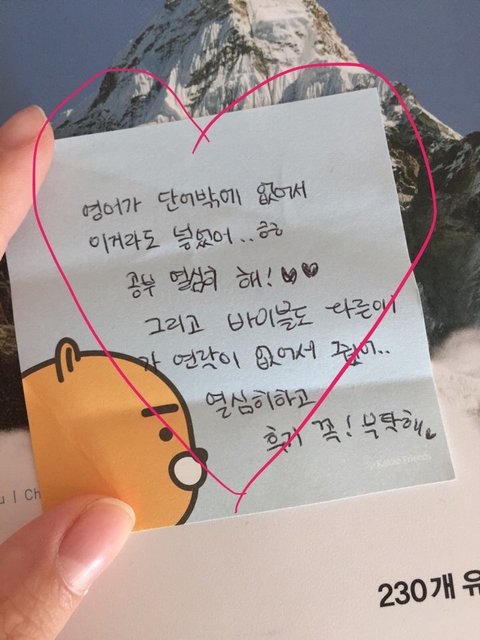 영어가 단어밖에 없어서
이거라도 넣었어..ㅎㅎ
공부 열심히 해!
그리고 바이블도 다른애
가 연락이 없어서 줬어..
열심히하고
후기 꼭! 부탁해
Kakao Friends
u | Ch
230개 유